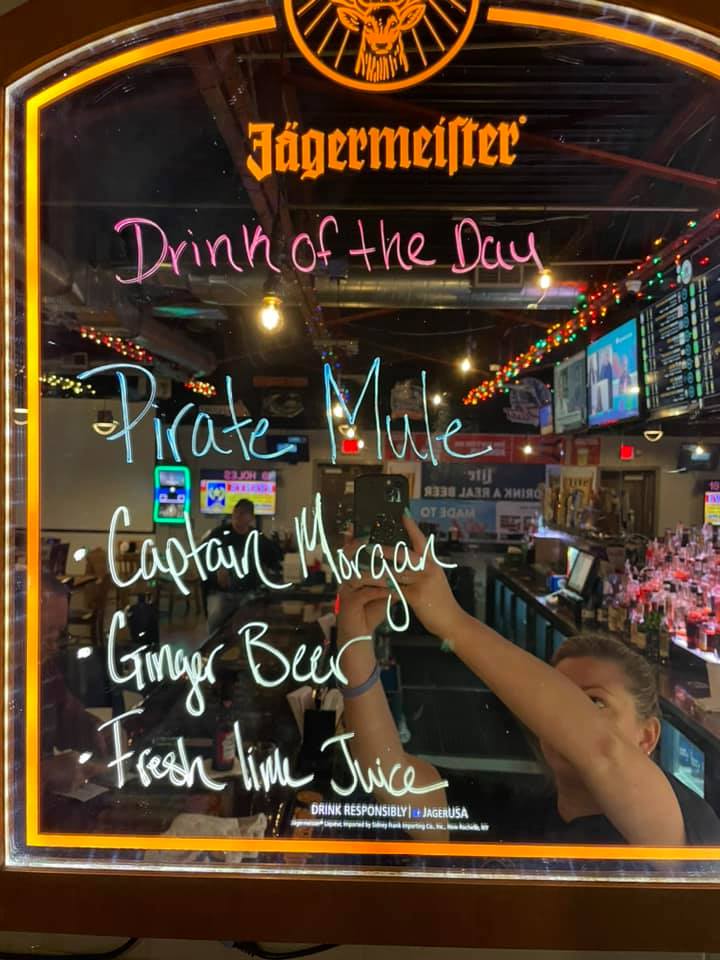 Jägermeister
Drink of the Day
Pirate Mule
• Captain Morgan
• Ginger Beer
• Fresh lime Juice
DRINK RESPONSIBLY | JAGERUSA
Jägermeister® Liqueur, Imported by Sidney Frank Importing Co., Inc., New Rochelle, NY
Lite
DRINK A REAL BEER
MADE TO